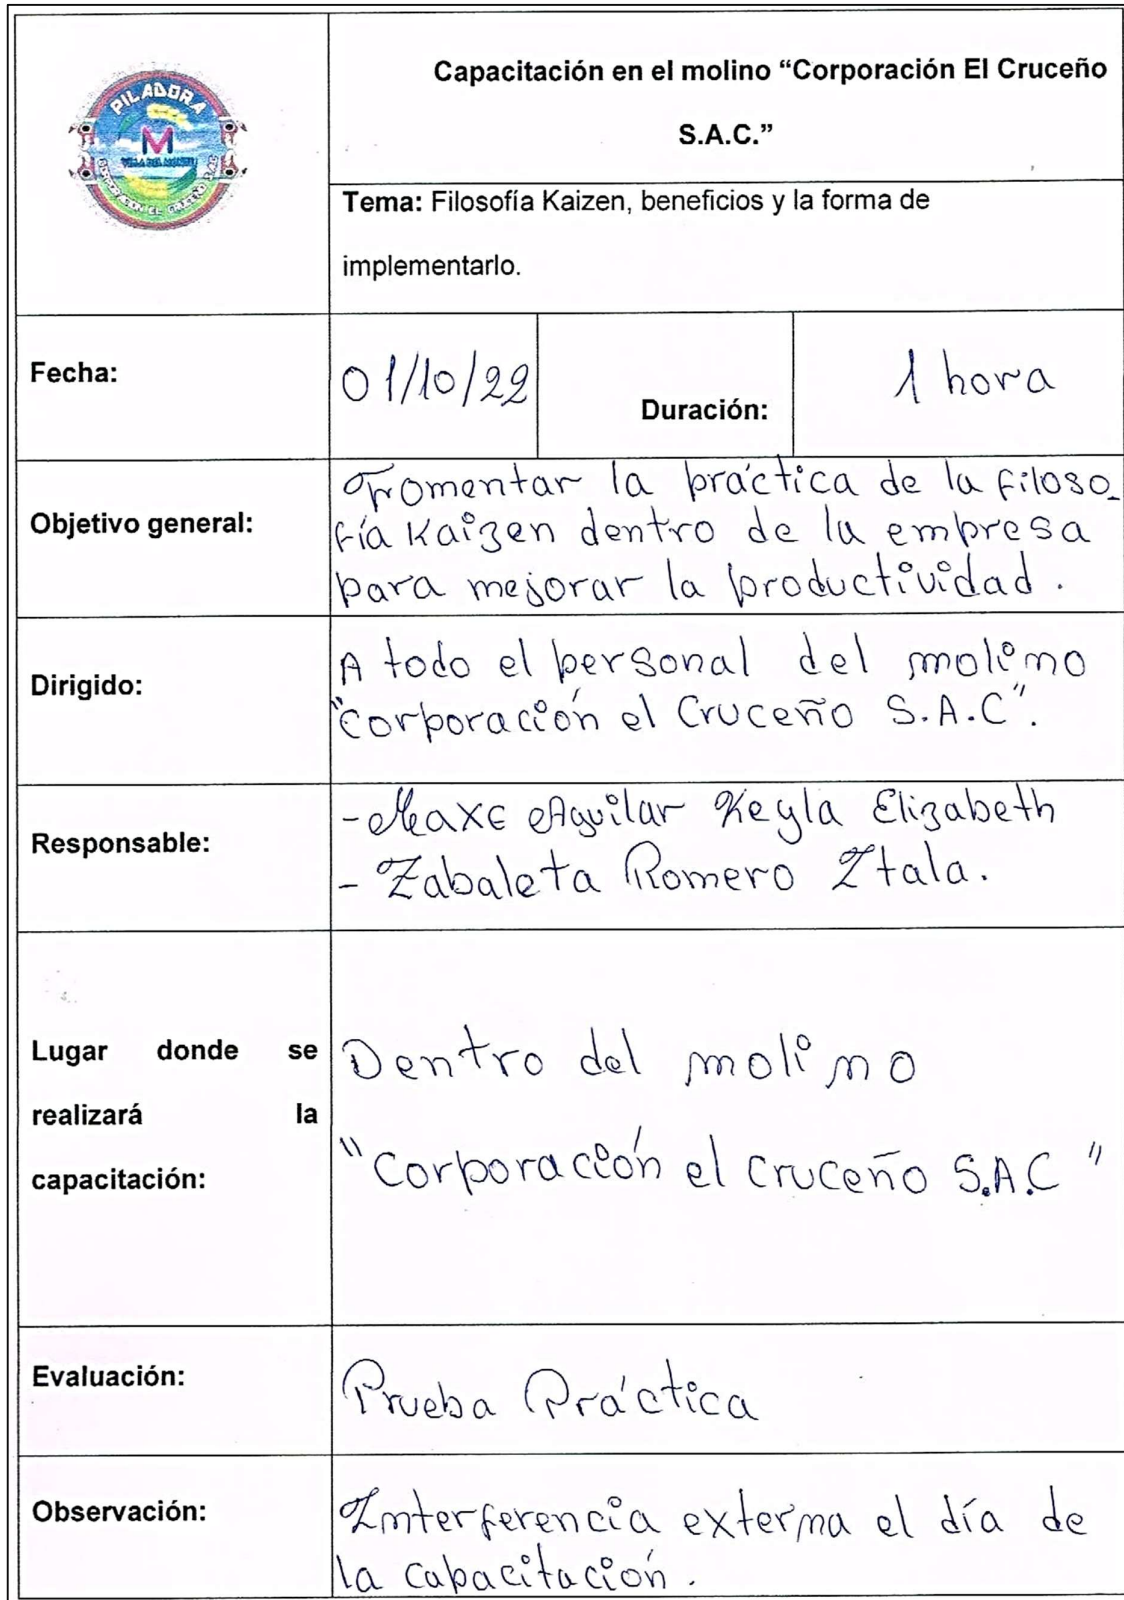 PILADORA
M
CORPORACION EL CRUCEÑO S.A.C
Capacitación en el molino “Corporación El Cruceño
S.A.C.”
Tema: Filosofía Kaizen, beneficios y la forma de
implementarlo.
Fecha:
01/10/22
Duración:
1 hora
Objetivo general:
Fomentar la práctica de la filoso_
fía Kaizen dentro de la empresa
para mejorar la productividad.
Dirigido:
A todo el personal del molino
"Corporación el Cruceño S.A.C".
Responsable:
- Maxe Aguilar Keyla Elizabeth
- Zabaleta Romero Itala.
Lugar donde se
realizará la
capacitación:
Dentro del molino
"Corporación el Cruceño S.A.C"
Evaluación:
Prueba Práctica
Observación:
Interferencia externa el día de
la capacitación.